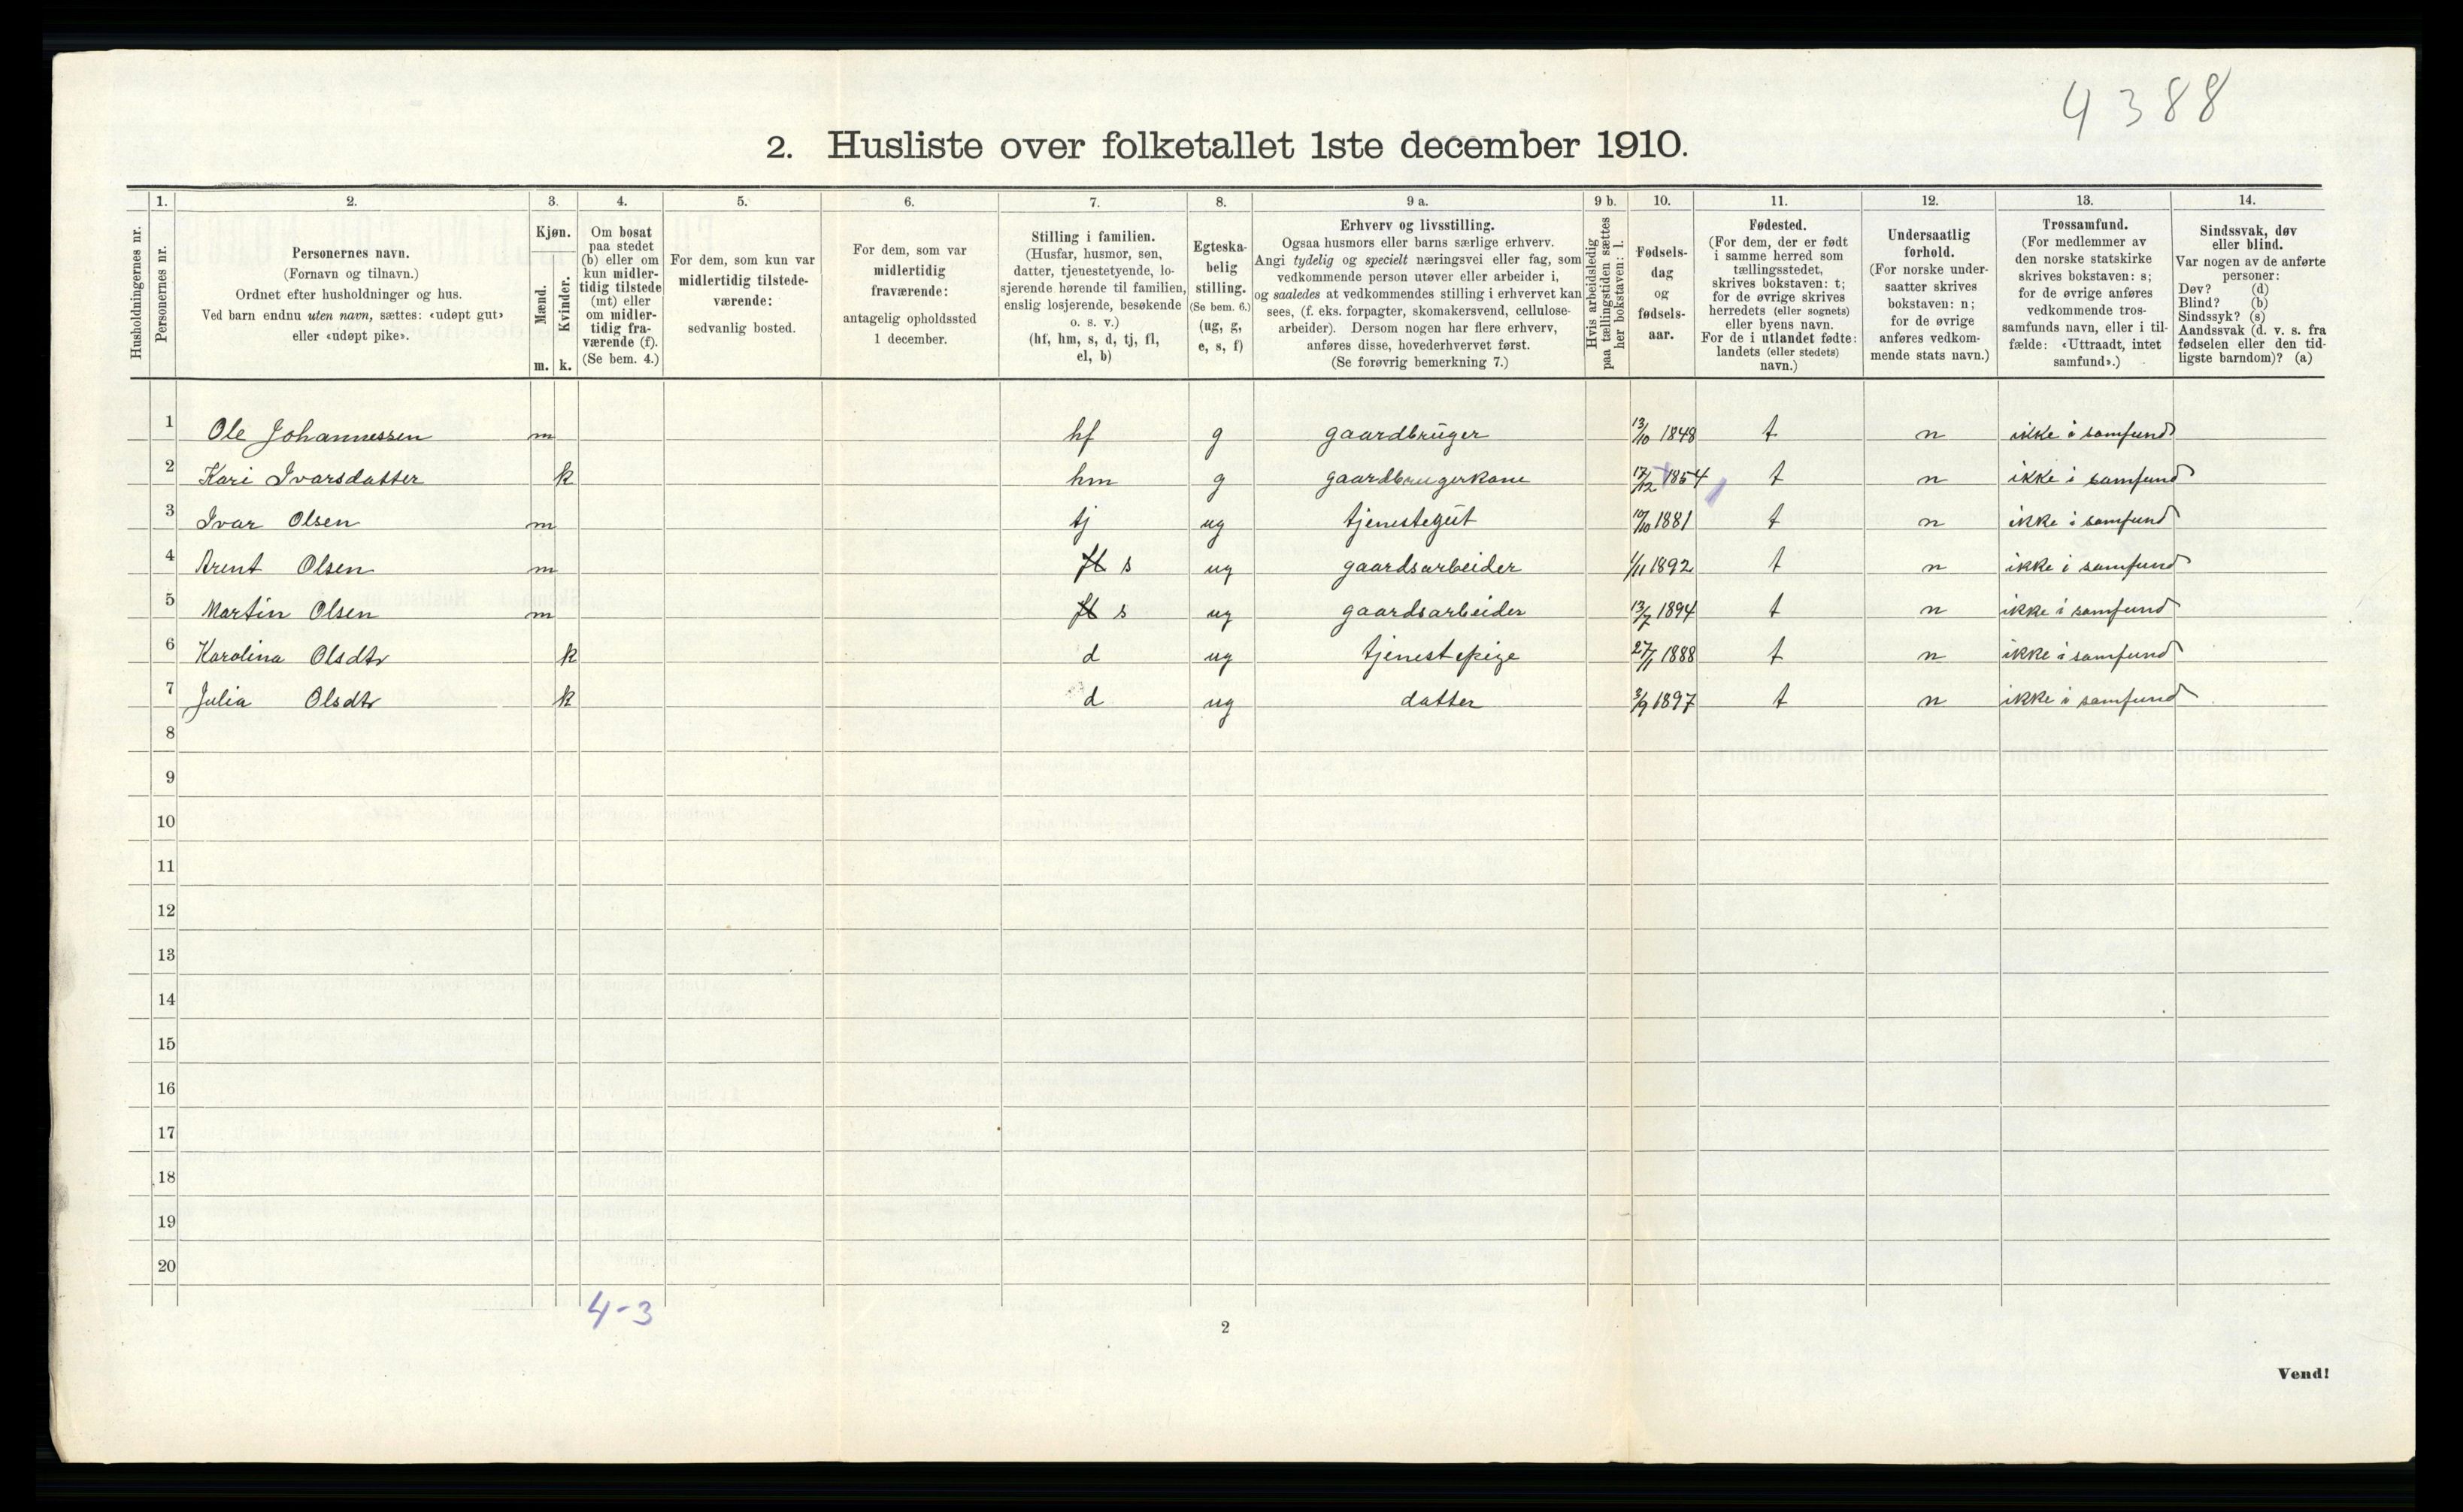 4388
2. Husliste over folketallet 1ste december 1910.
Husholdningernes nr.
1.
Personernes nr.
2.
Personernes navn.
(Fornavn og tilnavn.)
Ordnet efter husholdninger og hus.
Ved barn endnu uten navn, sættes: «udøpt gut»
eller «udøpt pike».
3.
Kjøn.
Mænd.
m.
Kvinder.
k.
4.
Om bosat
paa stedet
(b) eller om
kun midler-
tidig tilstede
(mt) eller
om midler-
tidig fra-
værende (f).
(Se bem. 4.)
5.
For dem, som kun var
midlertidig tilstede-
værende:
sedvanlig bosted.
6.
For dem, som var
midlertidig
fraværende:
antagelig opholdssted
1 december.
7.
Stilling i familien.
(Husfar, husmor, søn,
datter, tjenestetyende, lo-
sjerende hørende til familien,
enslig losjerende, besøkende
o. s. v.)
(hf, hm, s, d, tj, fl,
el, b)
8.
Egteska-
belig
stilling.
(Se bem. 6.)
(ug, g,
e, s, f)
9 a.
Erhverv og livsstilling.
Ogsaa husmors eller barns særlige erhverv.
Angi tydelig og specielt næringsvei eller fag, som
vedkommende person utøver eller arbeider i,
og saaledes at vedkommendes stilling i erhvervet kan
sees, (f. eks. forpagter, skomakersvend, cellulose-
arbeider). Dersom nogen har flere erhverv,
anføres disse, hovederhvervet først.
(Se forøvrig bemerkning 7.)
9 b.
Hvis arbeidsledig
paa tællingstiden sættes
her bokstaven: l.
10.
Fødsels-
dag
og
fødsels-
aar.
11.
Fødested.
(For dem, der er født
i samme herred som
tællingsstedet,
skrives bokstaven: t;
for de øvrige skrives
herredets (eller sognets)
eller byens navn.
For de i utlandet fødte:
landets (eller stedets)
navn.)
12.
Undersaatlig
forhold.
(For norske under-
saatter skrives
bokstaven: n;
for de øvrige
anføres vedkom-
mende stats navn.)
13.
Trossamfund.
(For medlemmer av
den norske statskirke
skrives bokstaven: s;
for de øvrige anføres
vedkommende tros-
samfunds navn, eller i til-
fælde: «Uttraadt, intet
samfund».)
14.
Sindssvak, døv
eller blind.
Var nogen av de anførte
personer:
Døv? (d)
Blind? (b)
Sindssyk? (s)
Aandssvak (d. v. s. fra
fødselen eller den tid-
ligste barndom)? (a)
1 Ole Johannessen m hf g gaardbruger 13/10 1848 t n ikke i samfund
2 Kari Ivarsdatter k hm g gaardbrugerkone 17/12 1854 t n ikke i samfund
3 Ivar Olsen m tj ug tjenestegut 10/10 1881 t n ikke i samfund
4 Arent Olsen m fl s ug gaardsarbeider 1/11 1892 t n ikke i samfund
5 Martin Olsen m fl s ug gaardsarbeider 13/7 1894 t n ikke i samfund
6 Karolina Olsdtr k d ug tjenestepige 27/1 1888 t n ikke i samfund
7 Julia Olsdtr k d ug datter 3/9 1897 t n ikke i samfund
8
9
10
11
12
13
14
15
16
17
18
19
20
4-3
2
Vend!